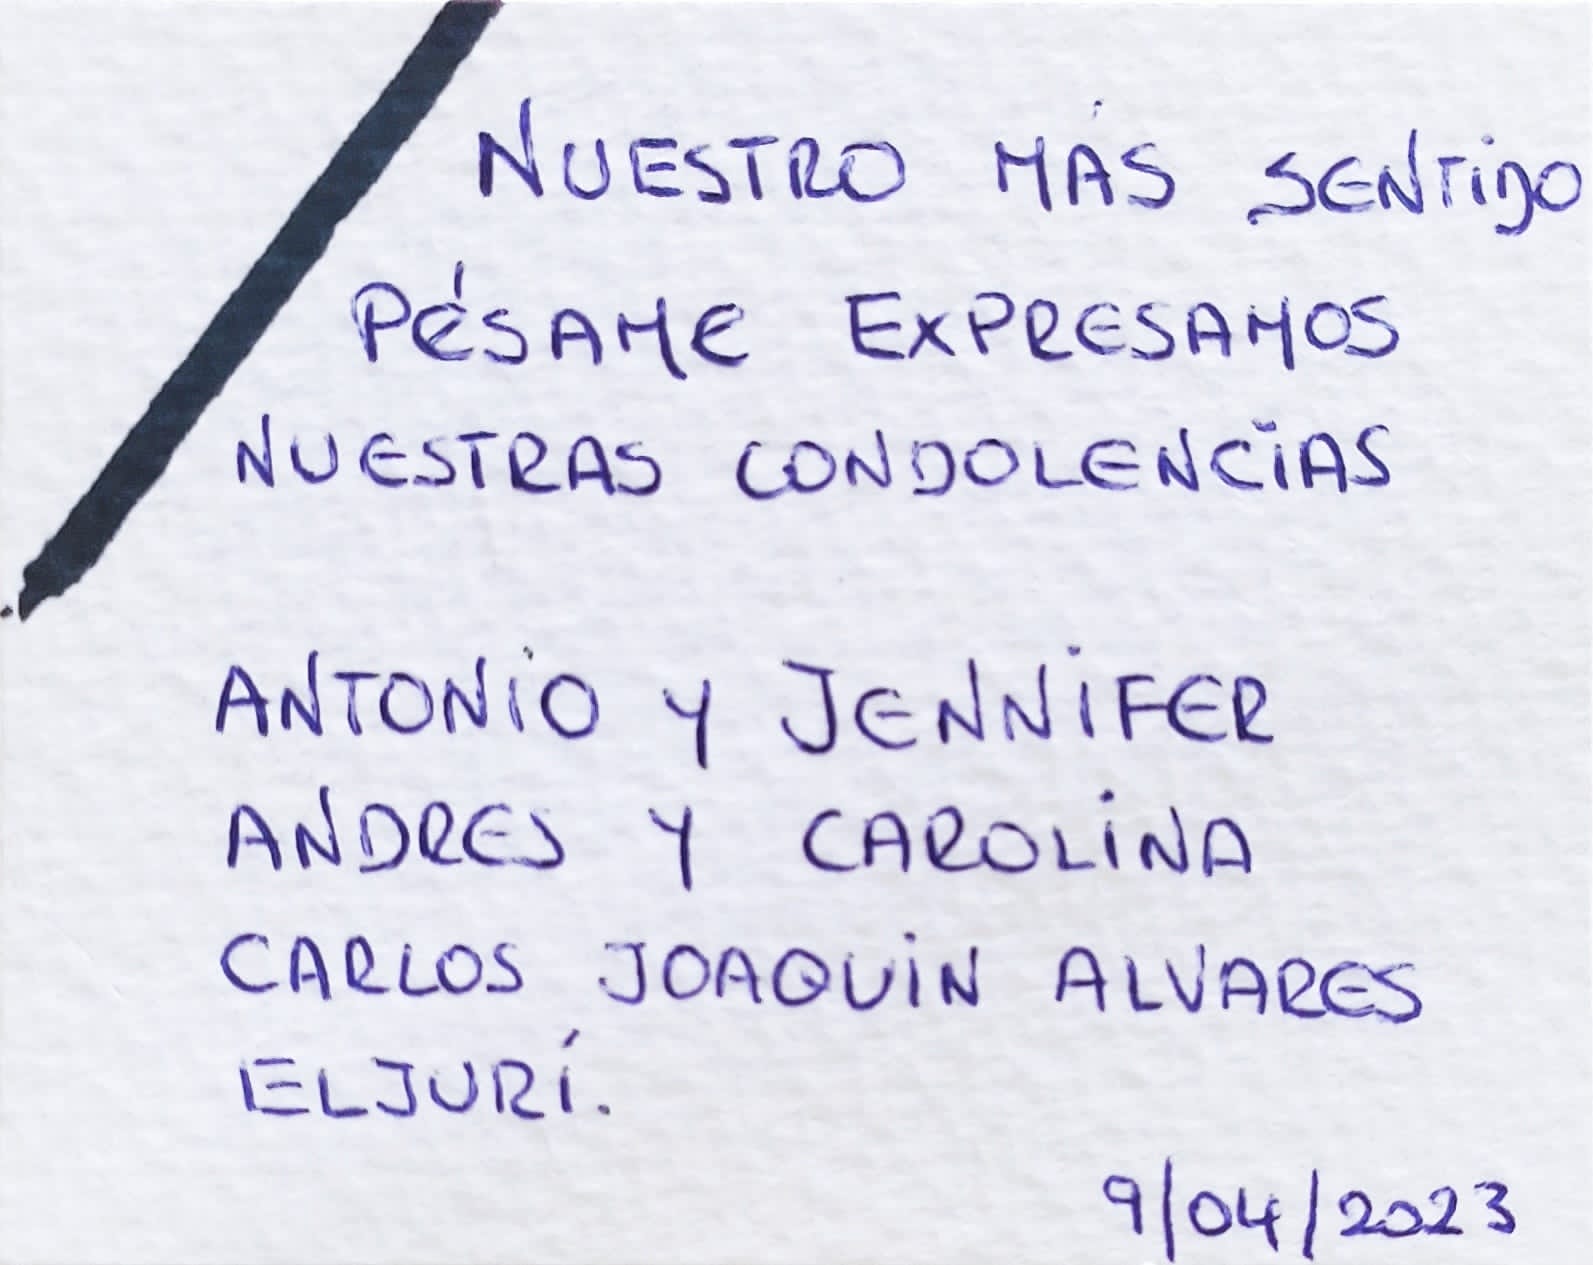 NUESTRO MÁS SENTIDO
PÉSAME EXPRESAMOS
NUESTRAS CONDOLENCIAS
ANTONIO Y JENNIFER
ANDRES Y CAROLINA
CARLOS JOAQUIN ALVARES
ELJURÍ.
9/04/2023